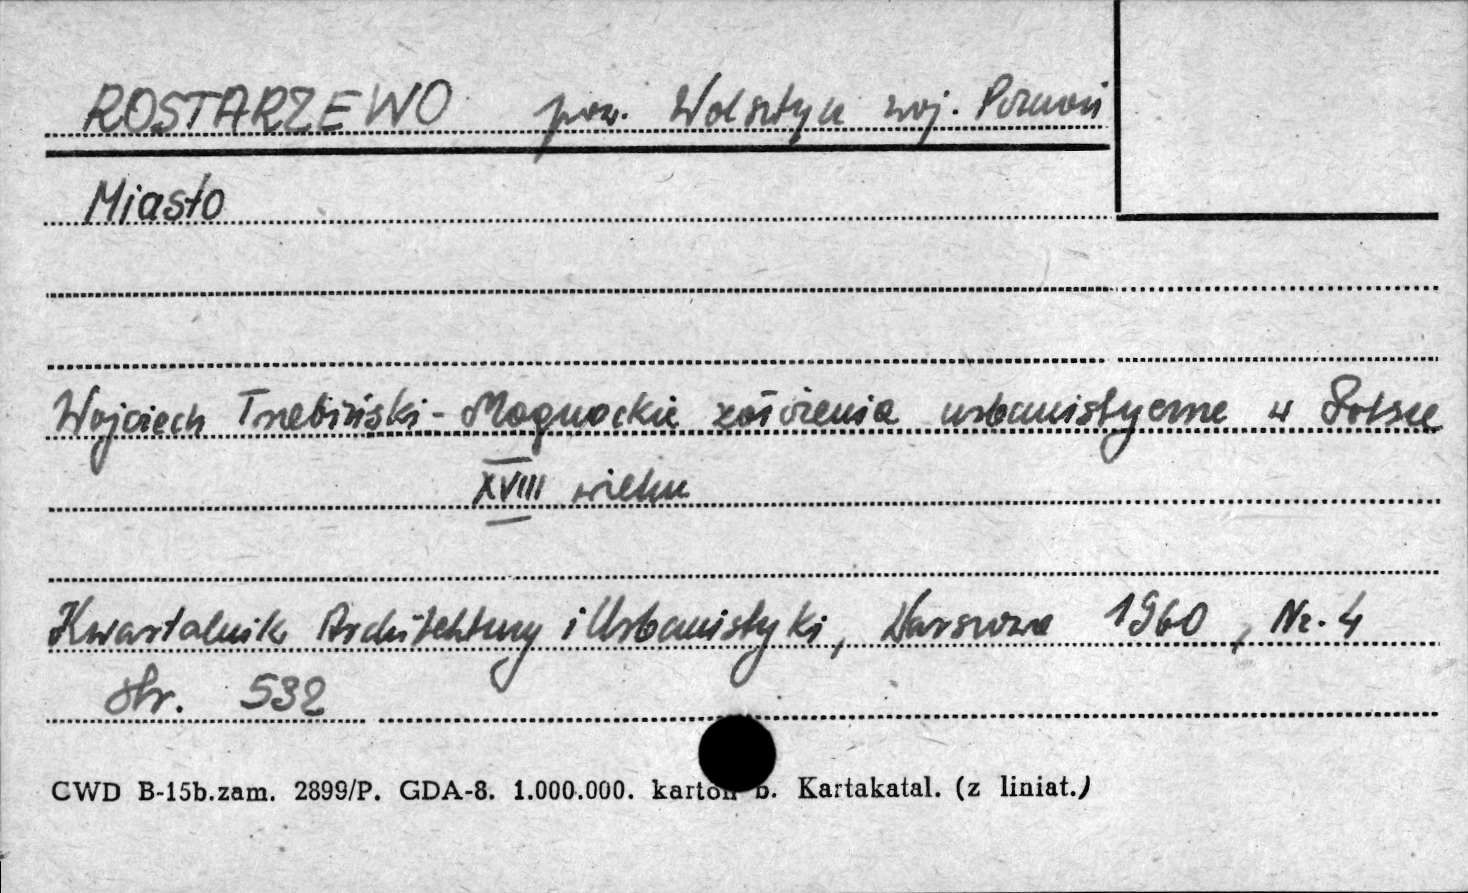 ROSTARZEWO pow. Wolsztyn woj. Poznań
Miasto
Wojciech Trzebiński - Magnackie założenia urbanistyczne w Polsce
XVIII wieku
Kwartalnik Architektury i Urbanistyki, Warszawa 1960, Nr. 4
str. 532
CWD B-15b.zam. 2899/P. GDA-8. 1.000.000. karton b. Kartakatal. (z liniat.)